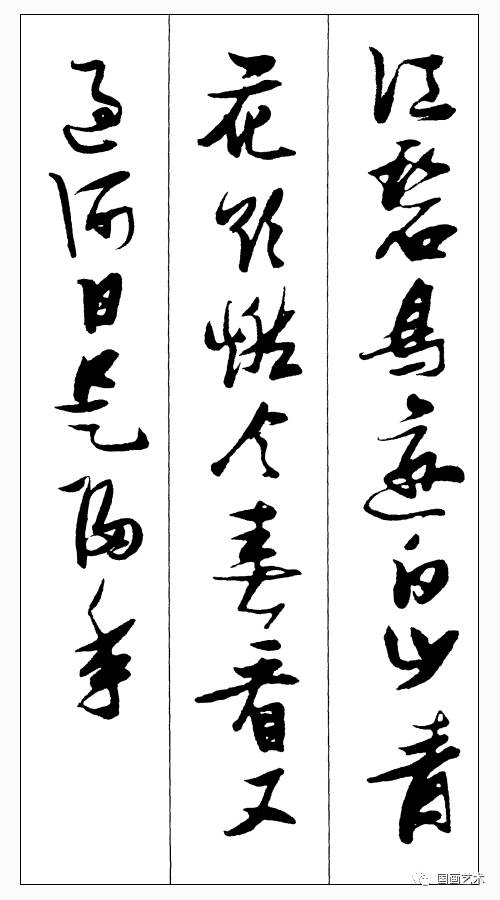 江碧鳥逾白山青
花欲燃今春看又
過何日是歸年
国画艺术